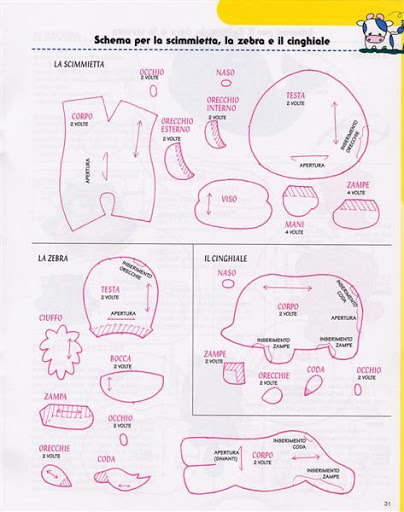 Schema per la scimmietta, la zebra e il cinghiale
LA SCIMMIETTA
OCCHIO
2 VOLTE
NASO
CORPO
2 VOLTE
APERTURA
ORECCHIO
ESTERNO
2 VOLTE
ORECCHIO
INTERNO
2 VOLTE
TESTA
2 VOLTE
INSERIMENTO
ORECCHIE
APERTURA
VISO
MANI
4 VOLTE
ZAMPE
4 VOLTE
LA ZEBRA
INSERIMENTO
ORECCHIE
TESTA
2 VOLTE
APERTURA
CIUFFO
BOCCA
2 VOLTE
ZAMPA
OCCHIO
2 VOLTE
ORECCHIE
2 VOLTE
CODA
APERTURA
(DAVANTI)
CORPO
2 VOLTE
INSERIMENTO
CODA
INSERIMENTO
ZAMPE
IL CINGHIALE
NASO
CORPO
2 VOLTE
INSERIMENTO
CODA
APERTURA
INSERIMENTO
ZAMPE
INSERIMENTO
ZAMPE
ZAMPE
2 VOLTE
ORECCHIE
2 VOLTE
CODA
OCCHIO
2 VOLTE
31